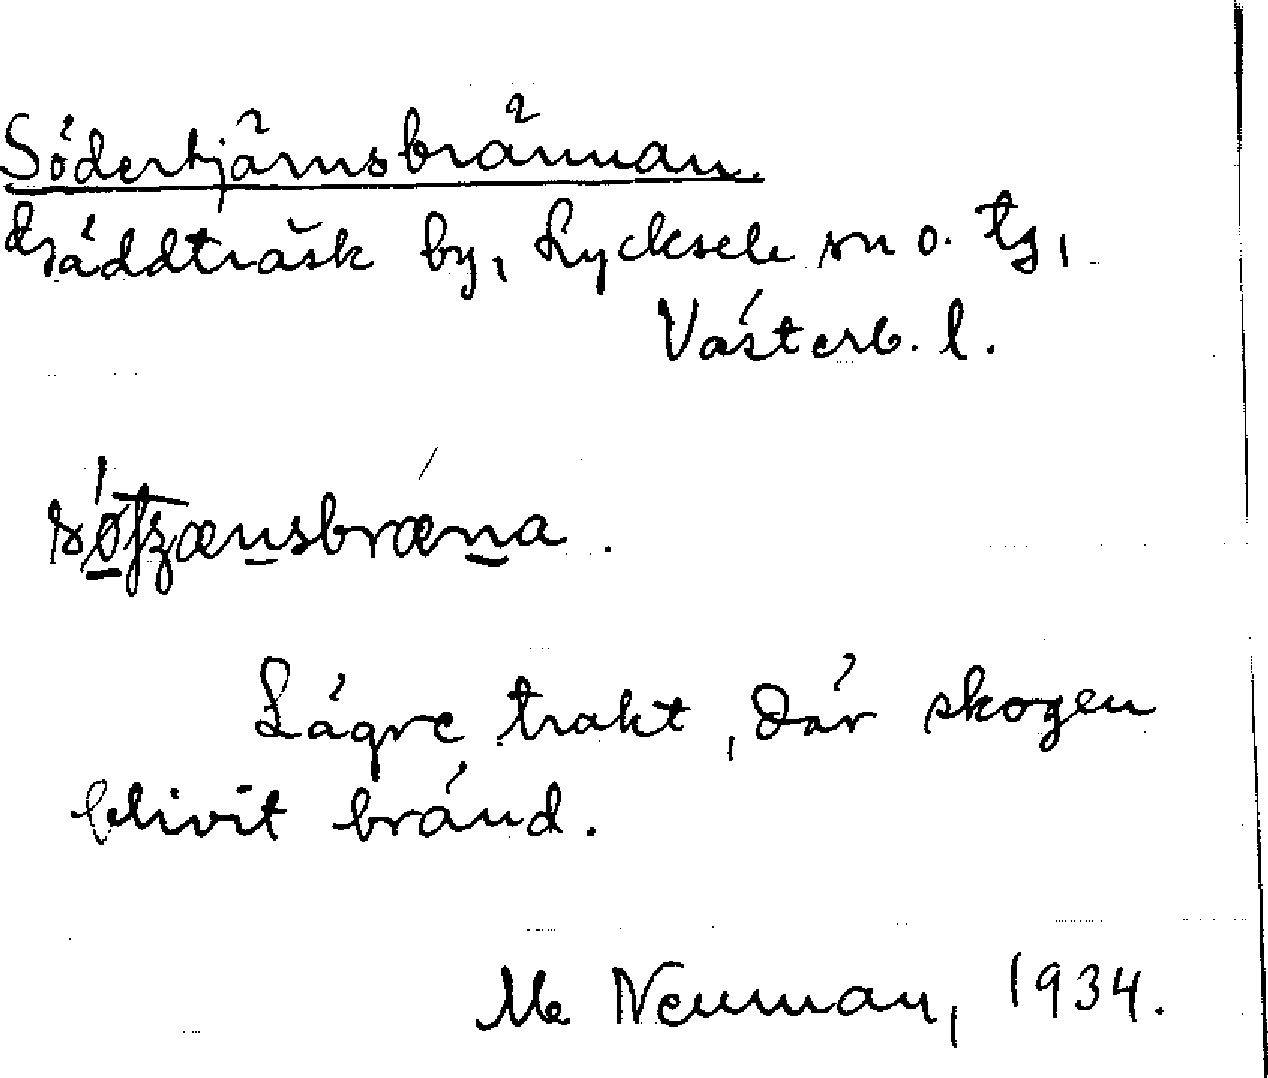 Södertjärnsbrännan.
Gäddträsk by, Lycksele sn o. tg,
Västerb. l.
Lägre trakt, där skogen
blivit bränd.
Me Neuman, 1934.